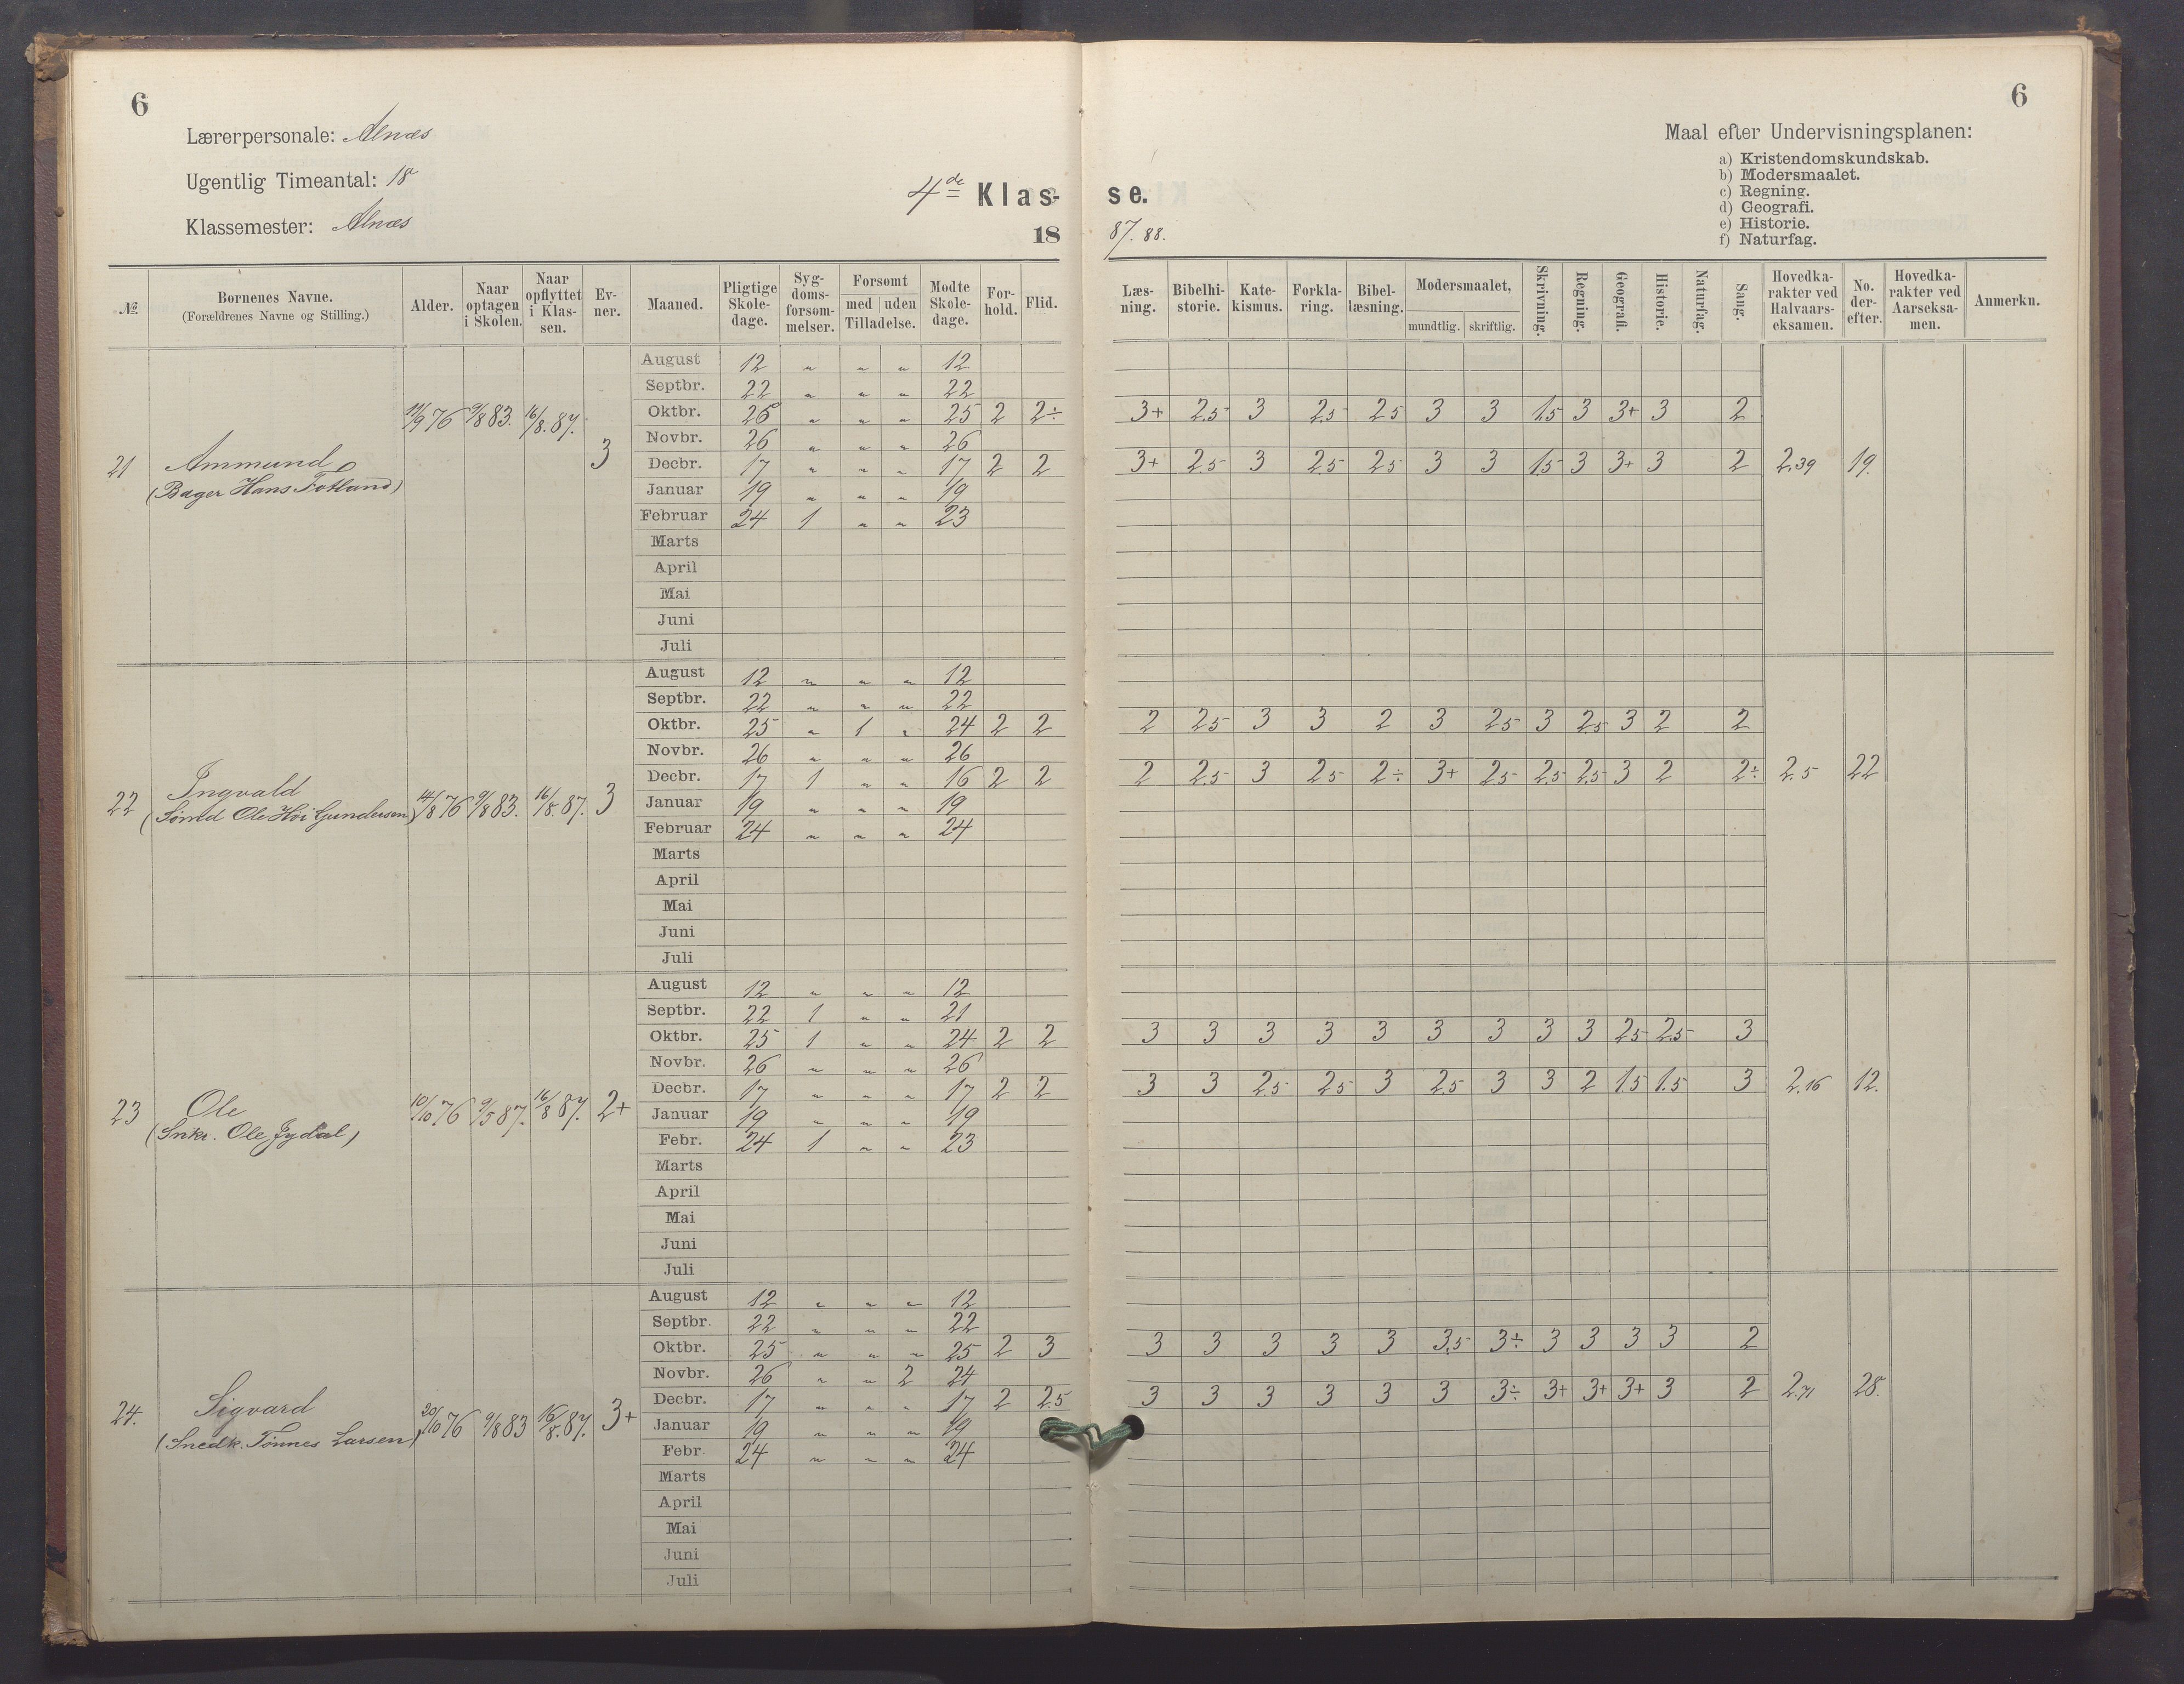 6
6
Lærerpersonale: Alnæs
Ugentlig Timeantal: 18
Klassemester: Alnæs
4de Klas- se.
18 87. 88.
Maal efter Undervisningsplanen:
a) Kristendomskundskab.
b) Modersmaalet.
c) Regning.
d) Geografi.
e) Historie.
f) Naturfag.
№ Børnenes Navne. (Forældrenes Navne og Stilling.) Alder. Naar optagen i Skolen. Naar opflyttet i Klas-sen. Ev-ner. Maaned. Pligtige Skole-dage. Syg-doms-forsøm-melser. Forsømt med uden Tilladelse. Mødte Skole-dage. For-hold. Flid. Læs-ning. Bibelhi-storie. Kate-kismus. Forkla-ring. Bibel-læsning. Modersmaalet, mundtlig. skriftlig. Skrivning. Regning. Geografi. Historie. Naturfag. Sang. Hovedka-rakter ved Halvaars-eksamen. No. der-efter. Hovedka-rakter ved Aarseksa-men. Anmerkn.
August 12 " " " 12
Septbr. 22 " " " 22
11/9 76 9/8 83. 16/8. 87. Oktbr. 25 " " " 25 2 2÷ 3+ 2.5 3 2.5 2.5 3 3 1.5 3 3+ 3 2
Novbr. 26 " " " 26
21 Ammund 3 Decbr. 17 " " " 17 2 2 3+ 2.5 3 2.5 2.5 3 3 1.5 3 3+ 3 2 2.39 19.
(Bager Hans Fotland) Januar 19 " " " 19
Februar 24 1 " " 23
Marts
April
Mai
Juni
Juli
August 12 " " " 12
Septbr. 22 " " " 22
Oktbr. 25 " 1 " 24 2 2 2 2.5 3 3 2 3 2.5 3 2.5 3 2 2
Novbr. 26 " " " 26
Decbr. 17 1 " " 16 2 2 2 2.5 3 2.5 2÷ 3+ 2.5 2.5 2.5 3 2 2÷ 2.5 22
22 Ingvald 14/8 76 9/8 83. 16/8. 87. 3 Januar 19 " " " 19
( Ole Gundersen) Februar 24 " " " 24
Marts
April
Mai
Juni
Juli
August 12 " " " 12
Septbr. 22 1 " " 21
Oktbr. 25 1 " " 24 2 2 3 3 3 3 3 3 3 3 3 2.5 2.5 3
Novbr. 26 " " " 26
Decbr. 17 " " " 17 2 2 3 3 2.5 2.5 3 2.5 3 3 2 1.5 1.5 3 2.16 12.
23 Ole 10/10 76 9/5 87. 16/8 87. 2+ Januar 19 " " " 19
(Snkr. Ole Jydal) Febr. 24 1 " " 23
Marts
April
Mai
Juni
Juli
August 12 " " " 12
Septbr. 22 " " " 22
Oktbr. 25 " " " 25 2 3 3 3 3 3 3 3.5 3÷ 3 3 3 3 2
Novbr. 26 " " 2 24
Decbr. 17 " " " 17 2 2.5 3 3 3 3 3 3 3÷ 3+ 3+ 3+ 3 2 2.71 28.
24. Sigvard 20/10 76 9/8 83 16/8. 87. 3+ Januar 19 " " " 19
(Snedk. Tønnes Larsen) Febr. 24 " " " 24
Marts
April
Mai
Juni
Juli